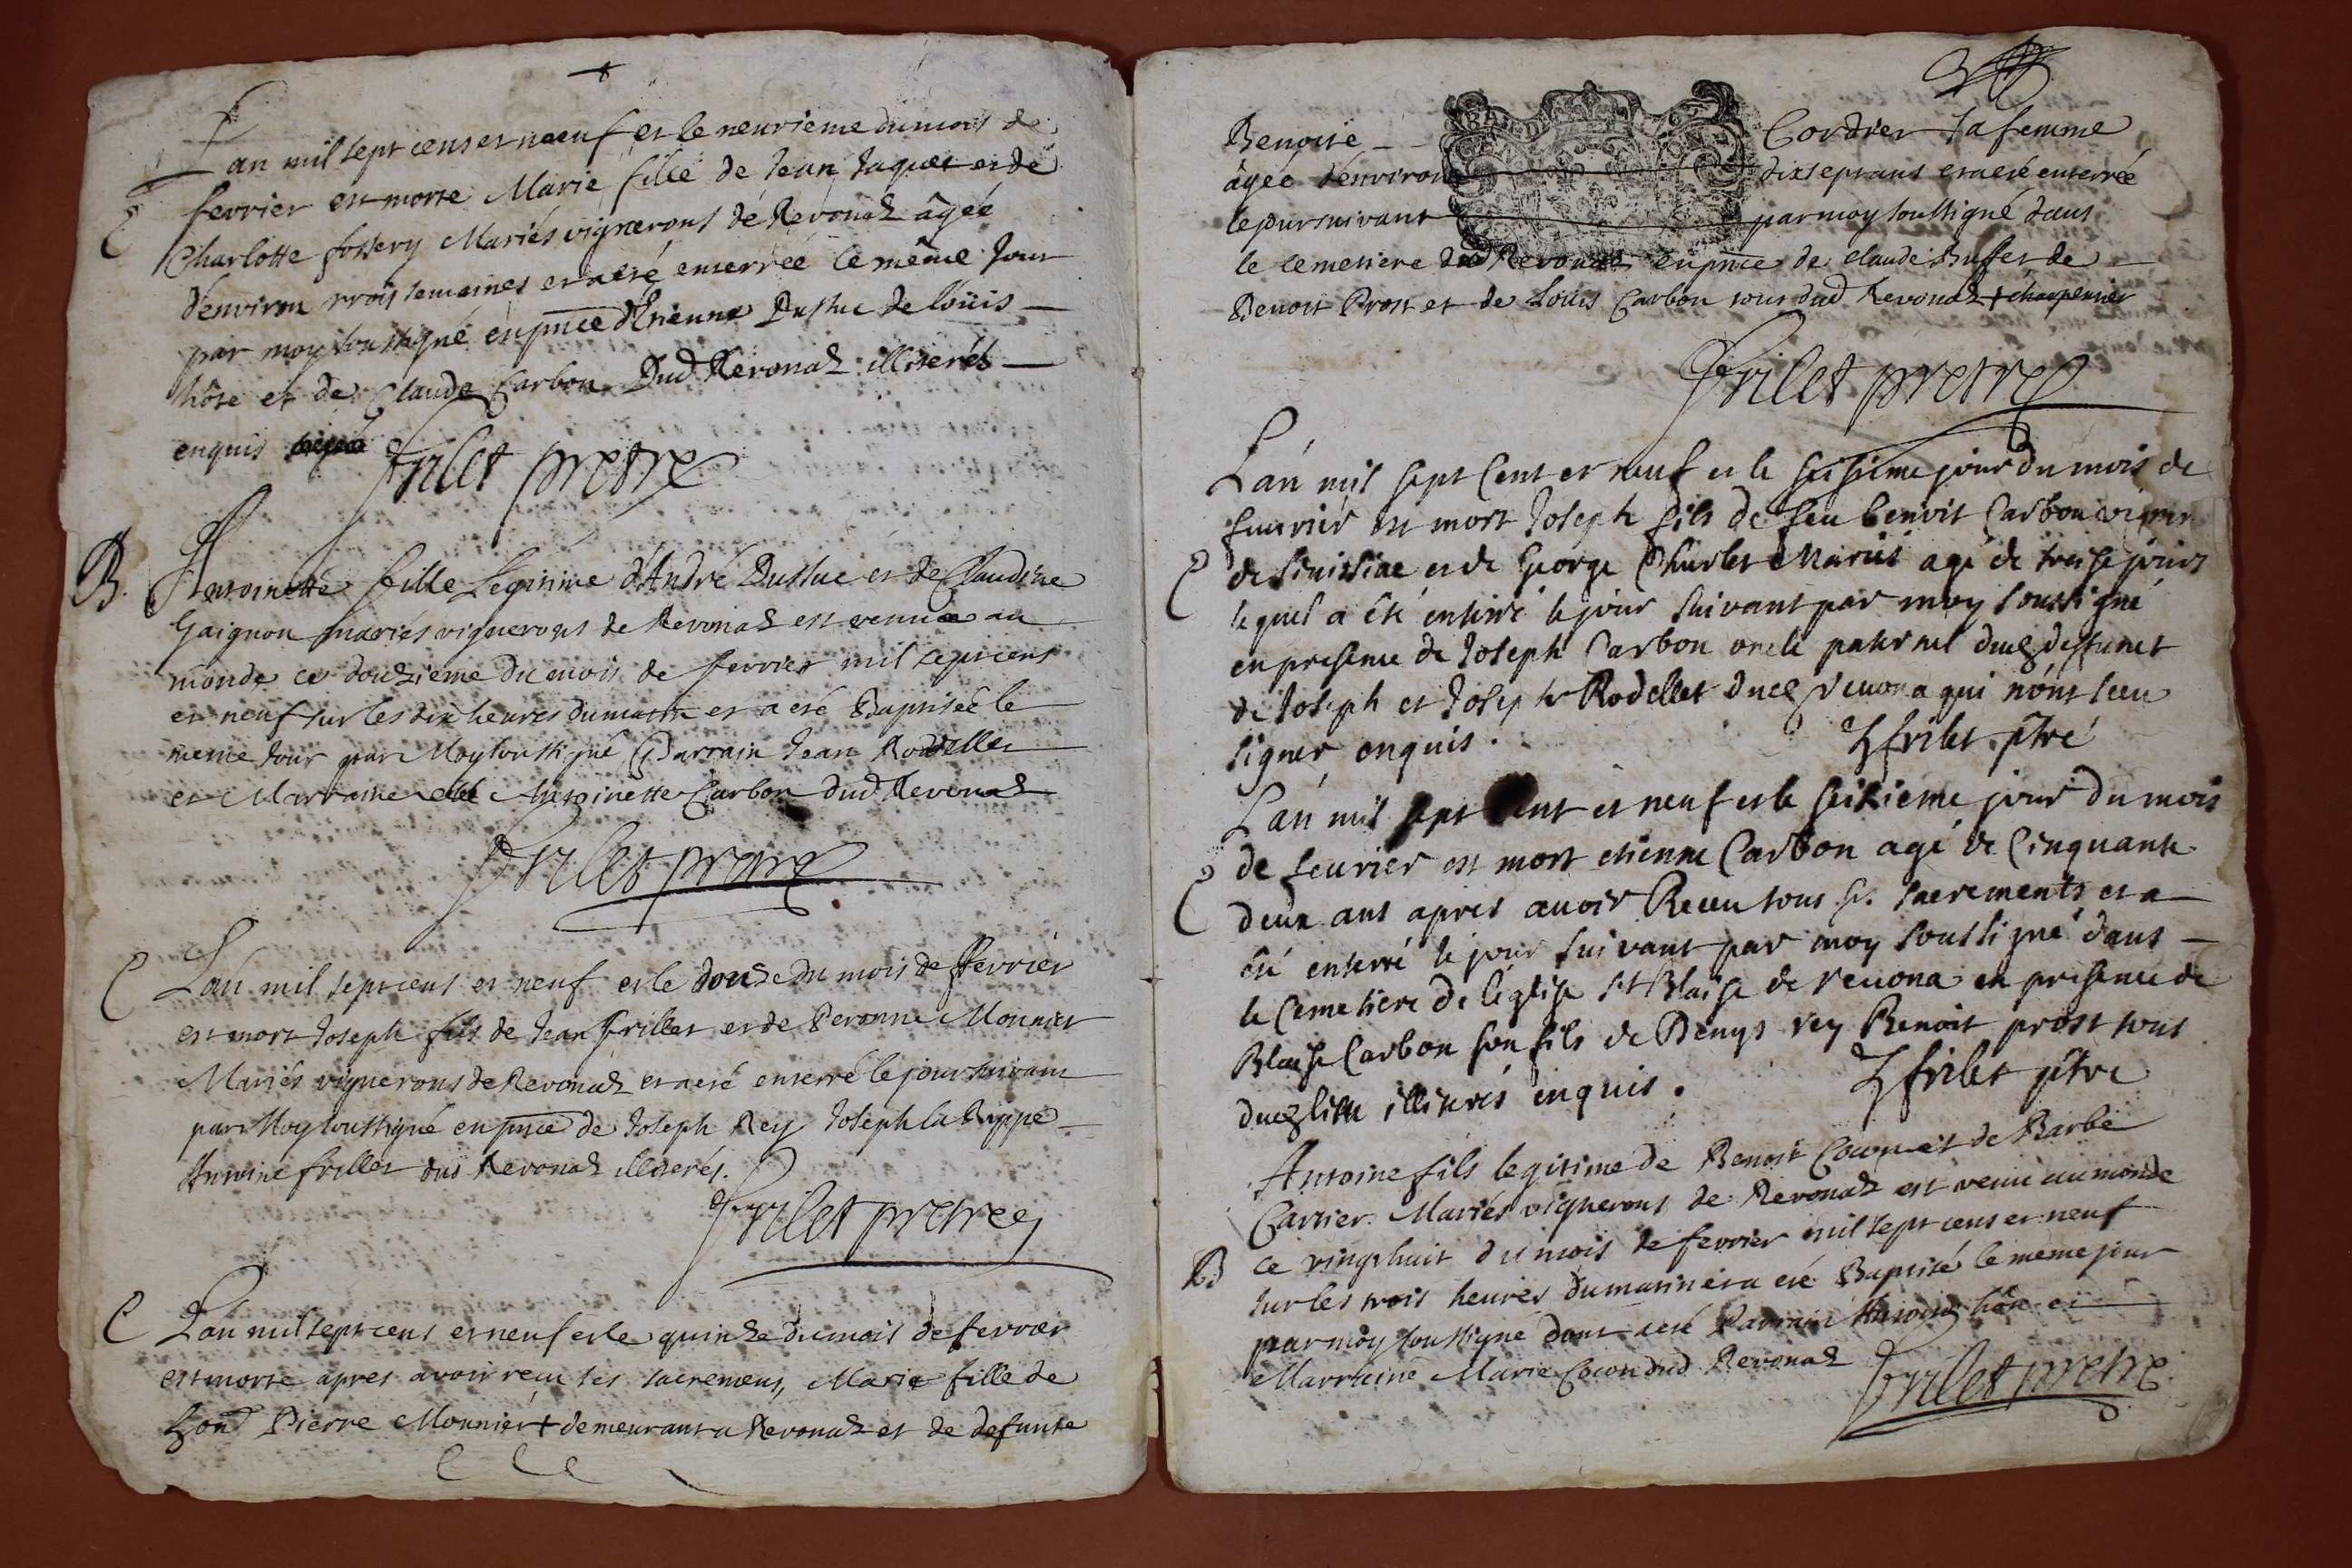 Lan mil sept cens et neuf et le neuvieme du mois de
fevrier est morte Marie fille de Jean Jaquet et de
Charlotte fossery Mariés vignerons de Revonaz âgée
d'environ trois semaines et a eté enterrée le même jour
par moy soussigné en pnce d'Etienne Dusluc de loüis
hôte et de Claude Carbon Dud Revonaz illiterés
enquis
frilet pretre
B. Antoinette fille Legitime d'André Dusluc et de Claudine
Gaignon mariés vignerons de Revonaz est venue au
monde ce douzieme du mois de fevrier mil sept cens
et neuf sur les dix heures du matin et a eté Baptisée le
meme jour par Moy soussigné Parrain Jean Rodellet
et Marraine Antoinette Carbon dud Revonaz
frilet pretre
C Lan mil sept cens et neuf et le douze du mois de fevrier
est mort Joseph fils de Jean frillet et de Peronne Monnier
Mariés vignerons de Revonaz et a eté enterré le jour suivant
par Moy soussigné en pnce de Joseph Rey Joseph la Ruppe
Antoine frillet dud Revonaz illiterés.
frilet pretre
C Lan mil sept cens et neuf et le quinze du mois de fevrier
est morte apres avoir reçu les sacremens, Marie fille de
hon Pierre Monnier + demeurant a Revonaz et de defunte
Benoite Cordier sa femme
âgée d'environ dix sept ans et a eté enterrée
le jour suivant par moy soussigné dans
le cemetiere dud Revonaz en pnce de claude Buffet de
Benoit Prost et de Louis Carbon tous dud Revonaz + charpentier
frilet pretre
L'an mil sept Cent et neuf et le seisieme jour du mois de
feuvrier est mort Joseph fils de feu benoit Carbon vigner
C de Simissiae et de George Charlet Mariés agé de treise jours
lequel a été enterré le jour suivant par moy soussigné
en presense de Joseph Carbon oncle paternel dud deffunct
de Joseph et Joseph Rodellet dud revona qui n'ont sceu
signer enquis.
frilet ptre
L'an mil sept cent et neuf et le seizieme jour du mois
de feurier est mort etienne Carbon agé de Cinquante
C deux ans apres avoir Receu tous ss. sacrements et a
été enterré le jour suivant par moy soussigné dans
le Cemetiere de l'église st Blaise de revona en presense de
Blaise Carbon son fils de Denys rey Benoit prost tous
dud lieu illiterés enquis.
frilet ptre
Antoine fils legitime de Benoit Cocon et de Barbe
Carrier Mariés vignerons de Revonaz est venu au monde
B ce vingthuit du mois de fevrier mil sept cens et neuf
sur les trois heures du matin et a eté Baptisé le meme jour
par moy soussigné dont a eté Parrain Antoine hôte et
Marraine Marie Cocon dud Revonaz
frilet pretre